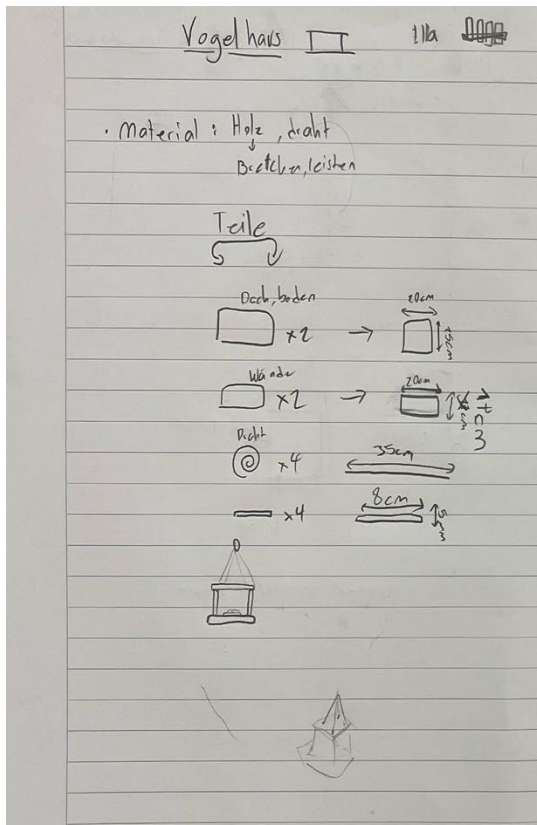 Vogelhaus
· Material : Holz , draht
Bretchen, leisten
Teile
Dach, boden
x2
20cm
15cm
Wände
x2
20cm
Draht
x4
35cm
x4
8cm